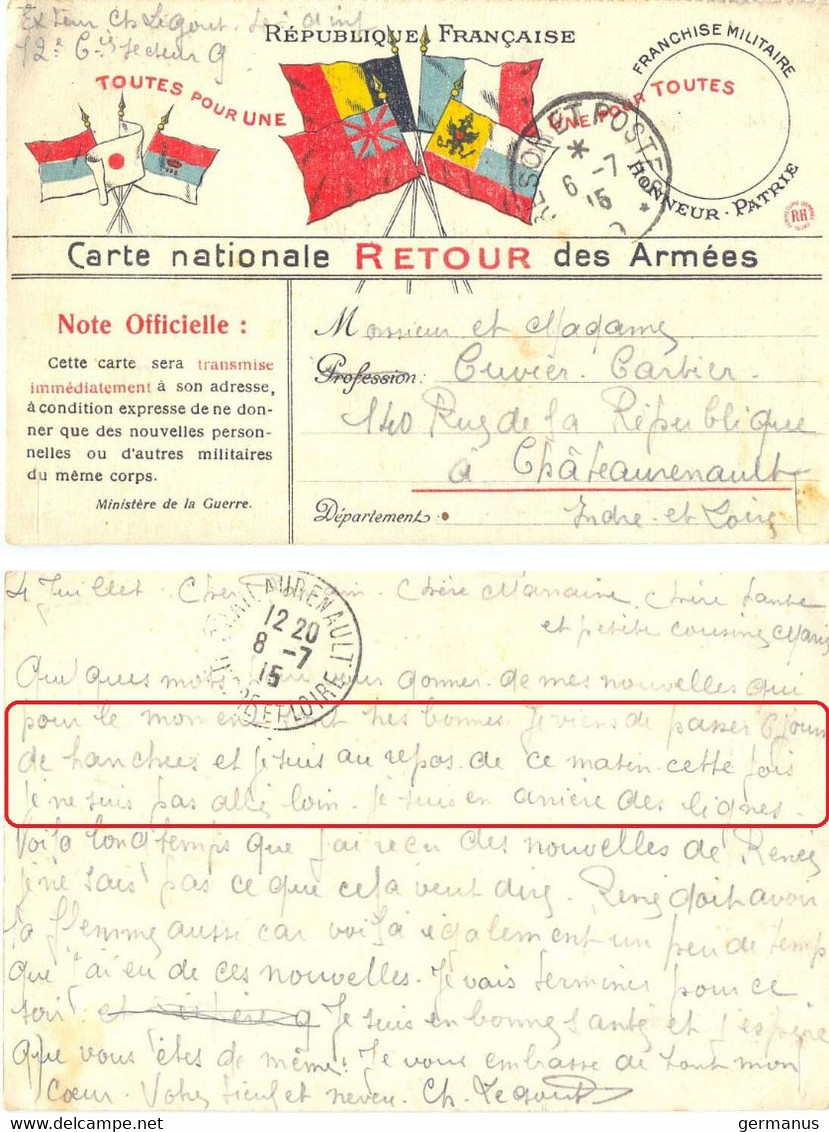 Ex teur Ch Legout
12e Cie Secteur 9
RÉPUBLIQUE FRANÇAISE
FRANCHISE MILITAIRE
TOUTES POUR UNE
UNE POUR TOUTES
TRESOR ET POSTES
6 -7
15
HONNEUR · PATRIE
RH
Carte nationale RETOUR des Armées
Note Officielle :
Cette carte sera transmise
immédiatement à son adresse,
à condition expresse de ne don-
ner que des nouvelles person-
nelles ou d'autres militaires
du même corps.
Ministère de la Guerre.
Monsieur et Madame
Profession: Cuvier-Carbier
140 Rue de la République
à Châteaurenault
Département: Indre-et-Loire
4 Juillet. Cher Chère Marraine, Chère tante
et petite cousine Marie
CHATEAURENAULT
12 20
8 -7
15
INDRE ET LOIRE
Quelques mots pour vous donner de mes nouvelles qui
pour le moment sont très bonnes. Je viens de passer 6 jours
de tranchées et je suis au repos de ce matin cette fois
je ne suis pas allé loin. je suis en arrière des lignes.
Voilà longtemps que j'ai reçu des nouvelles de Renée
je ne sais pas ce que cela veut dire. René doit avoir
la flemme aussi car voilà également un peu de temps
que j'ai eu de ces nouvelles. Je vais terminer pour ce
soir. Je suis en bonne santé et j'espère
que vous êtes de même. Je vous embrasse de tout mon
coeur. Votre fieul et neveu. Ch. Legout
germanus